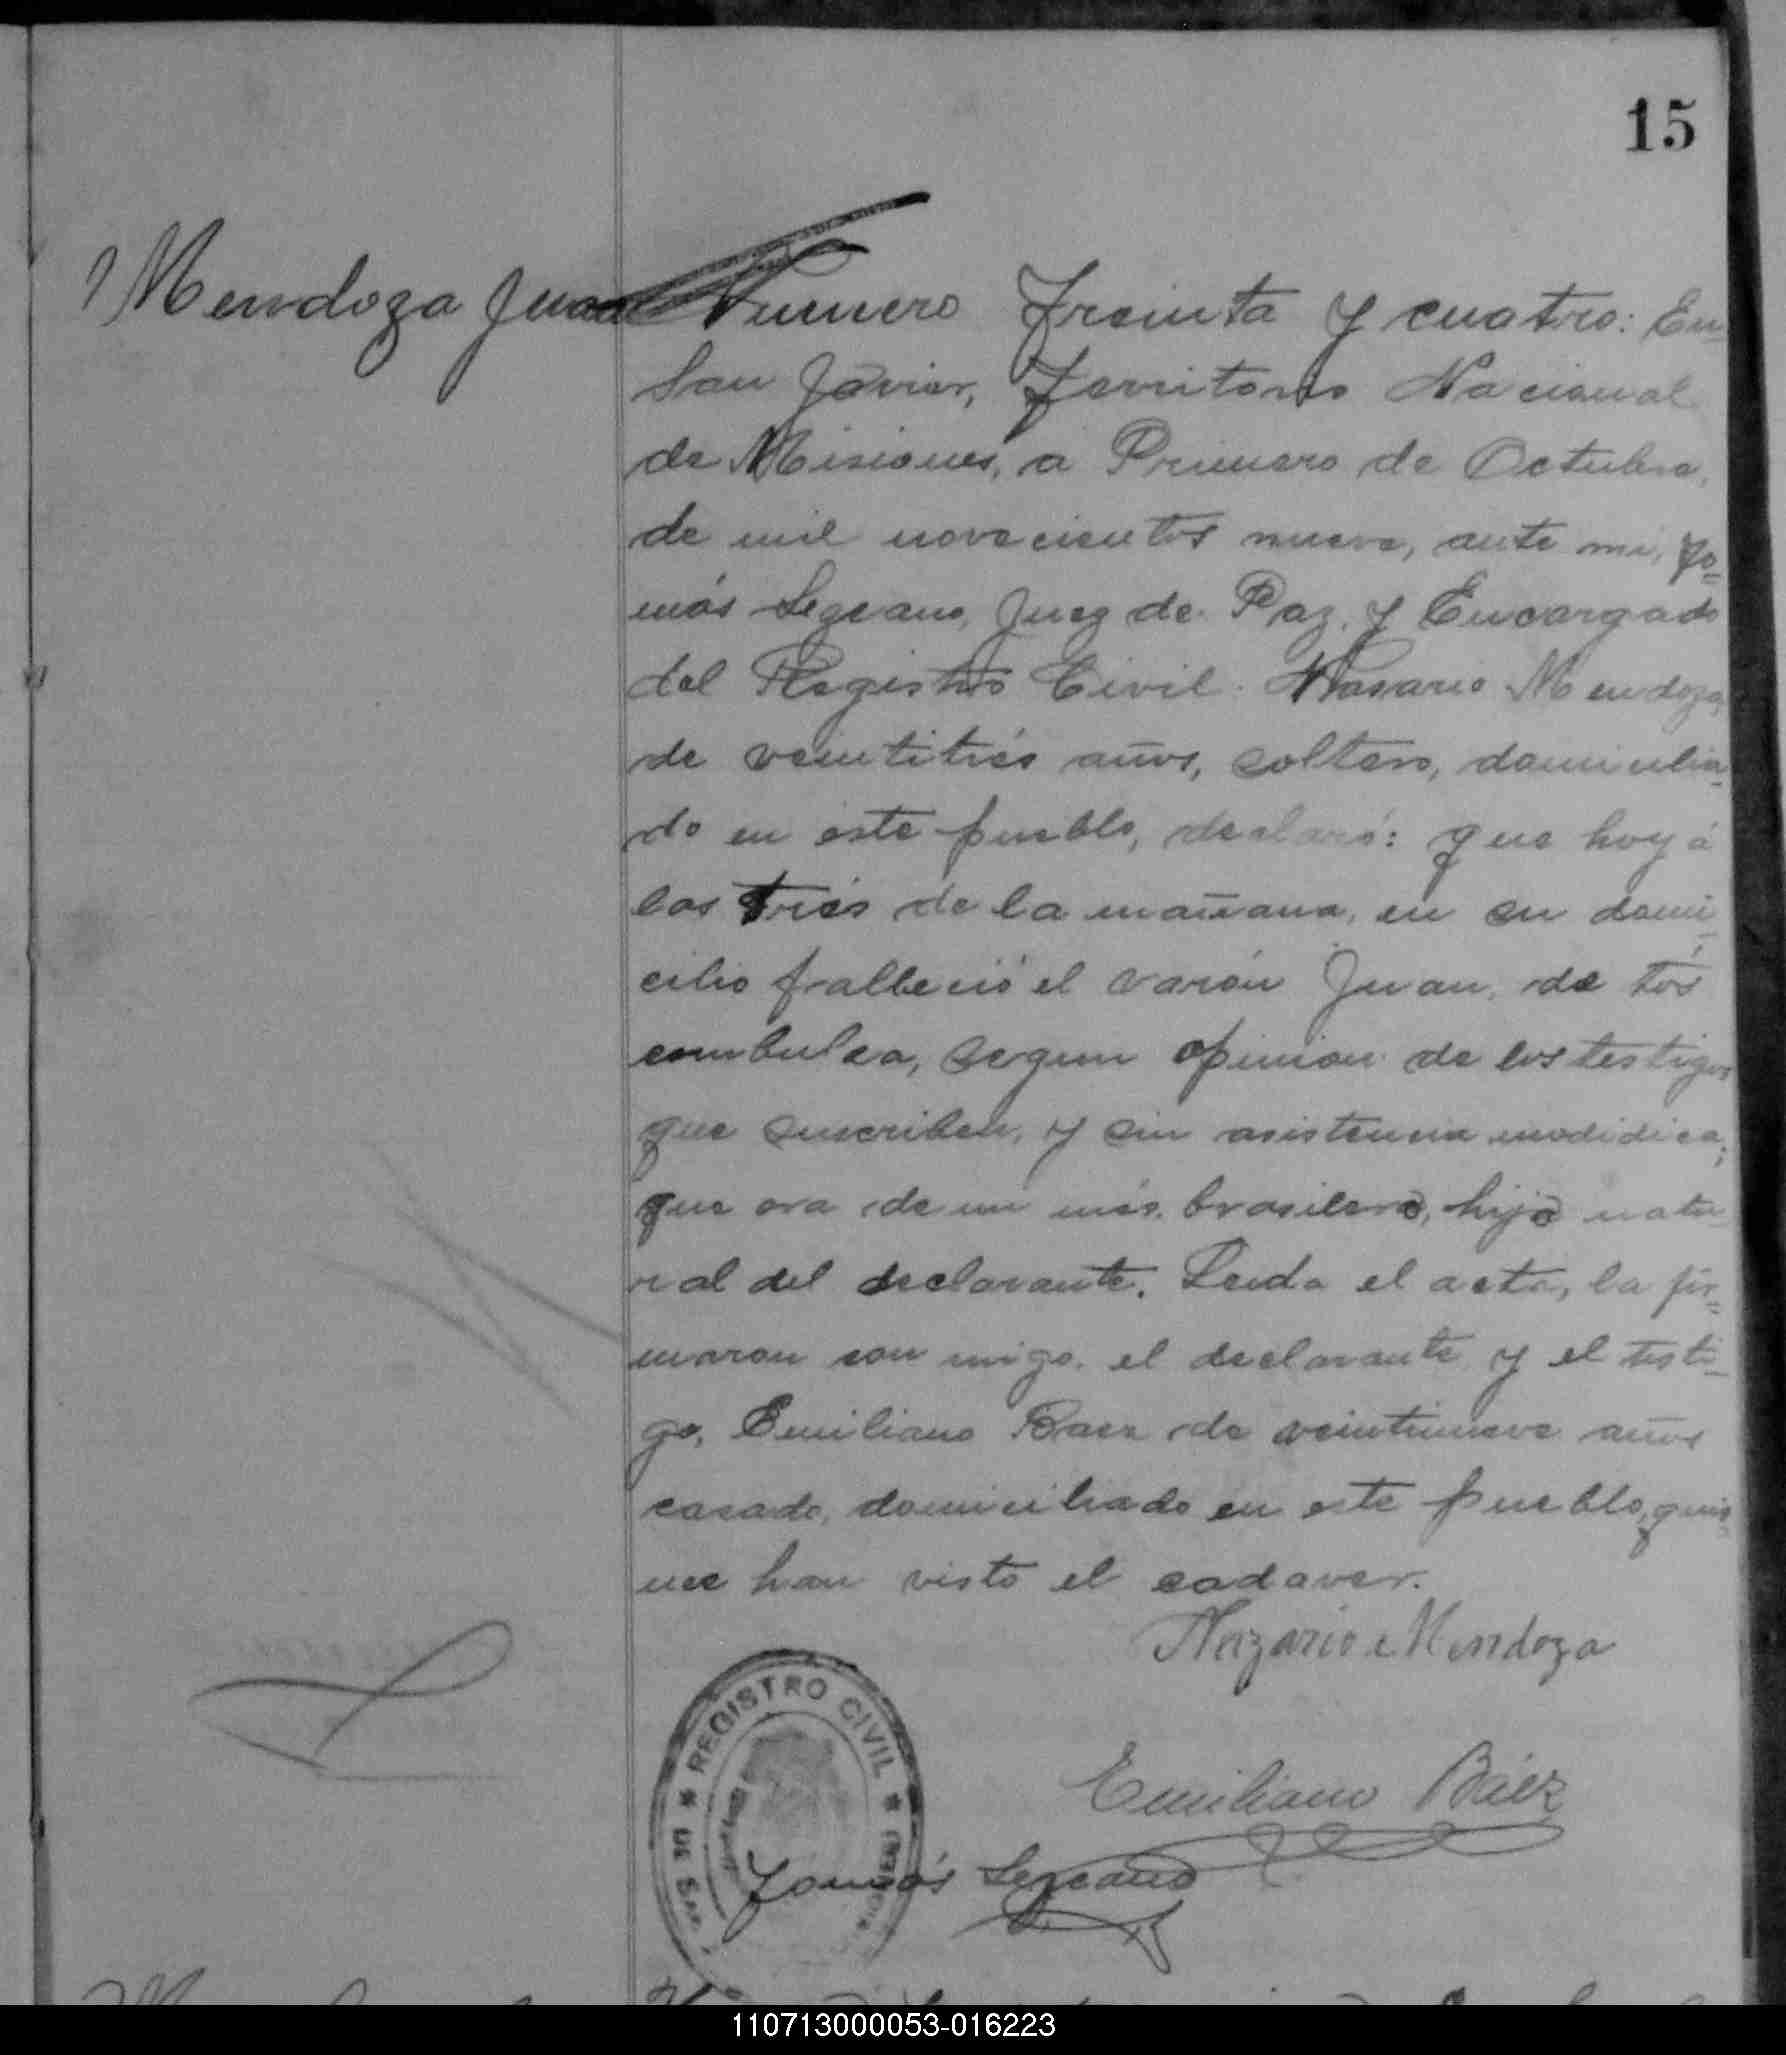 15
Mendoza Juan
Numero Treinta y cuatro: En
San Javier, Territorio Nacional
de Misiones, a Primero de Octubre,
de mil novecientos nueve, ante mi, To-
más Lezcano, Juez de Paz, y Encargado
del Registro Civil. Nasario Mendoza,
de veintitrés años, soltero, domicilia-
do en este pueblo, declaró: que hoy á
las trés de la mañana, en su domi-
cilio falleció el varón Juan, de tós
combulsa, segun opinion de los testigos
que suscriben, y sin asistencia medidica;
que era de un més, brasilero, hijo natu-
ral del declarante. Leida el acta, la fir-
maron con migo, el declarante y el testi-
go, Emiliano Baez de veintinueve años
casado, domiciliado en este pueblo, quie-
nes han visto el cadaver.
Nazario Mendoza
REGISTRO CIVIL
Emiliano Báez
Tomás Lezcano
110713000053-016223